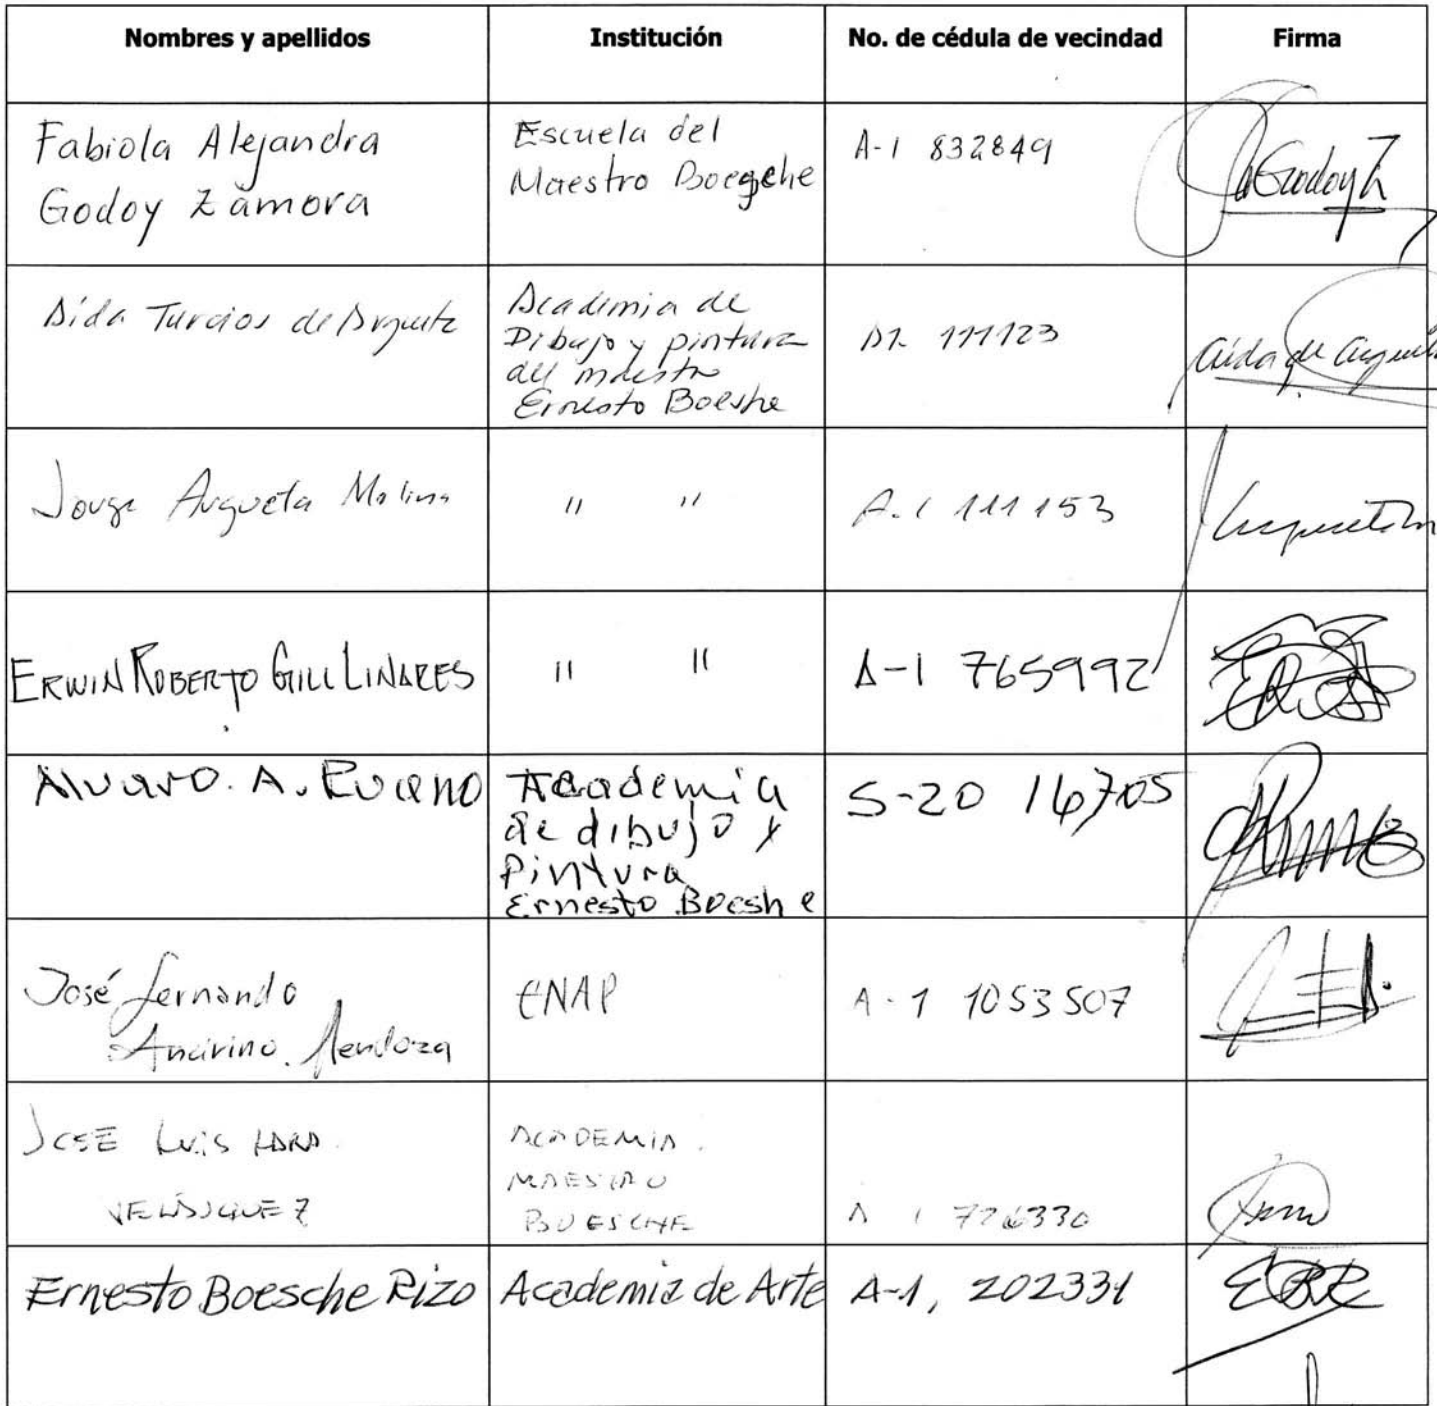 Nombres y apellidos
Institución
No. de cédula de vecindad
Firma
Fabiola Alejandra
Godoy Zamora
Escuela del
Maestro Boegche
A-1 832849
Godoy Z
Aída Turcios de Argueta
Academia de
Dibujo y pintura
del maestro
Ernesto Boeshe
A1- 111123
Aída de Argueta
Jorge Argueta Molina
" "
A-1 111153
ERWIN ROBERTO GILL LINARES
" "
A-1 765992
Alvaro. A.
Academia
de dibujo y
Pintura
Ernesto Boeshe
S-20 16705
José Fernando
Mendoza
ENAP
A-1 1053507
JOSE LUIS LARA
VELASQUEZ
ACADEMIA.
MAESTRO
BOESCHE
A 1
Ernesto Boesche Rizo
Academia de Arte
A-1, 202331
EBR